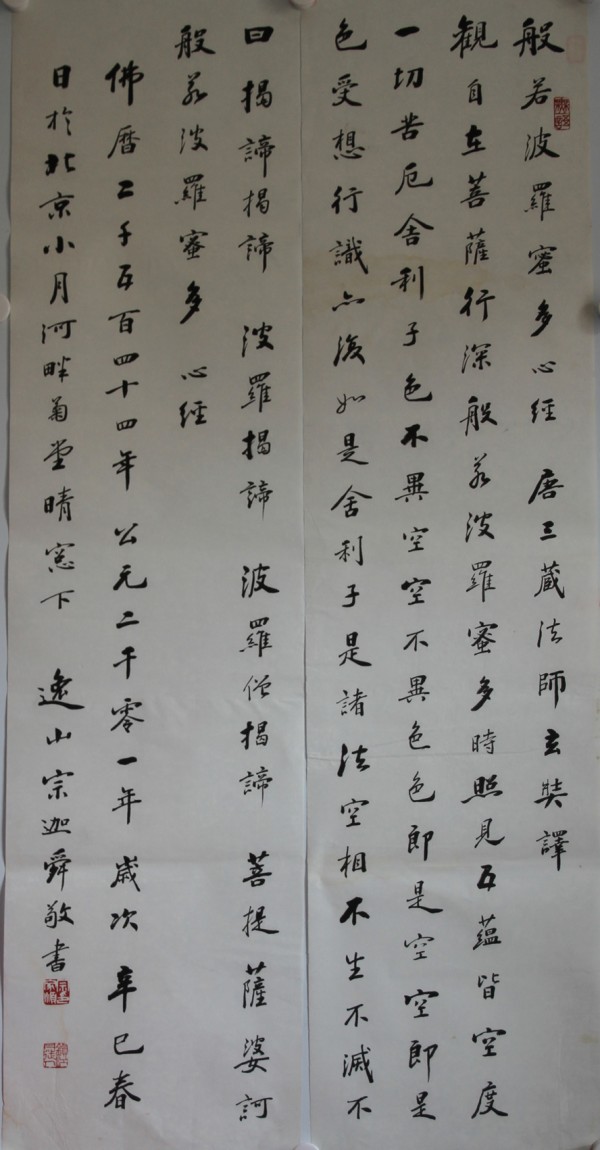 般若波羅蜜多心經 唐三藏法師玄奘譯
觀自在菩薩行深般若波羅蜜多時照見五蘊皆空度
一切苦厄舍利子色不異空空不異色色即是空空即是
色受想行識亦復如是舍利子是諸法空相不生不滅不
曰揭諦揭諦 波羅揭諦 波羅僧揭諦 菩提薩婆訶
般若波羅蜜多 心經
佛曆二千五百四十四年 公元二千零一年 歲次 辛巳春
日於北京小月河畔菊堂晴窓下 逸山宗迦舜敬書